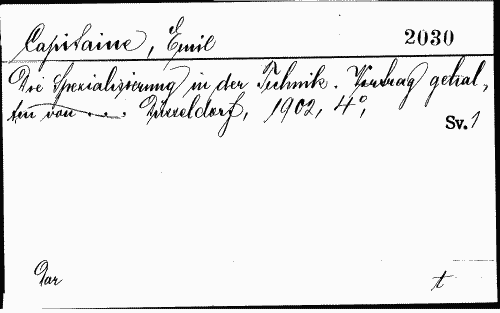 Capitaine, Emil 2030
Die Spezialisierung in der Technik. Vortrag gehal-
ten von .... Düsseldorf, 1902, 4°,
Sv. 1
Dar t